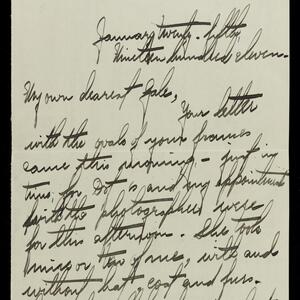 January twenty-fifty
Nineteen hundred eleven-
My own dearest Gale,
Your letter
with the ovals of your frames
came this morning - just in
time, for Dot's and my appointment
with the photographer were
for this afternoon. She took
nine or ten of me, with and
without hat, coat and furs.